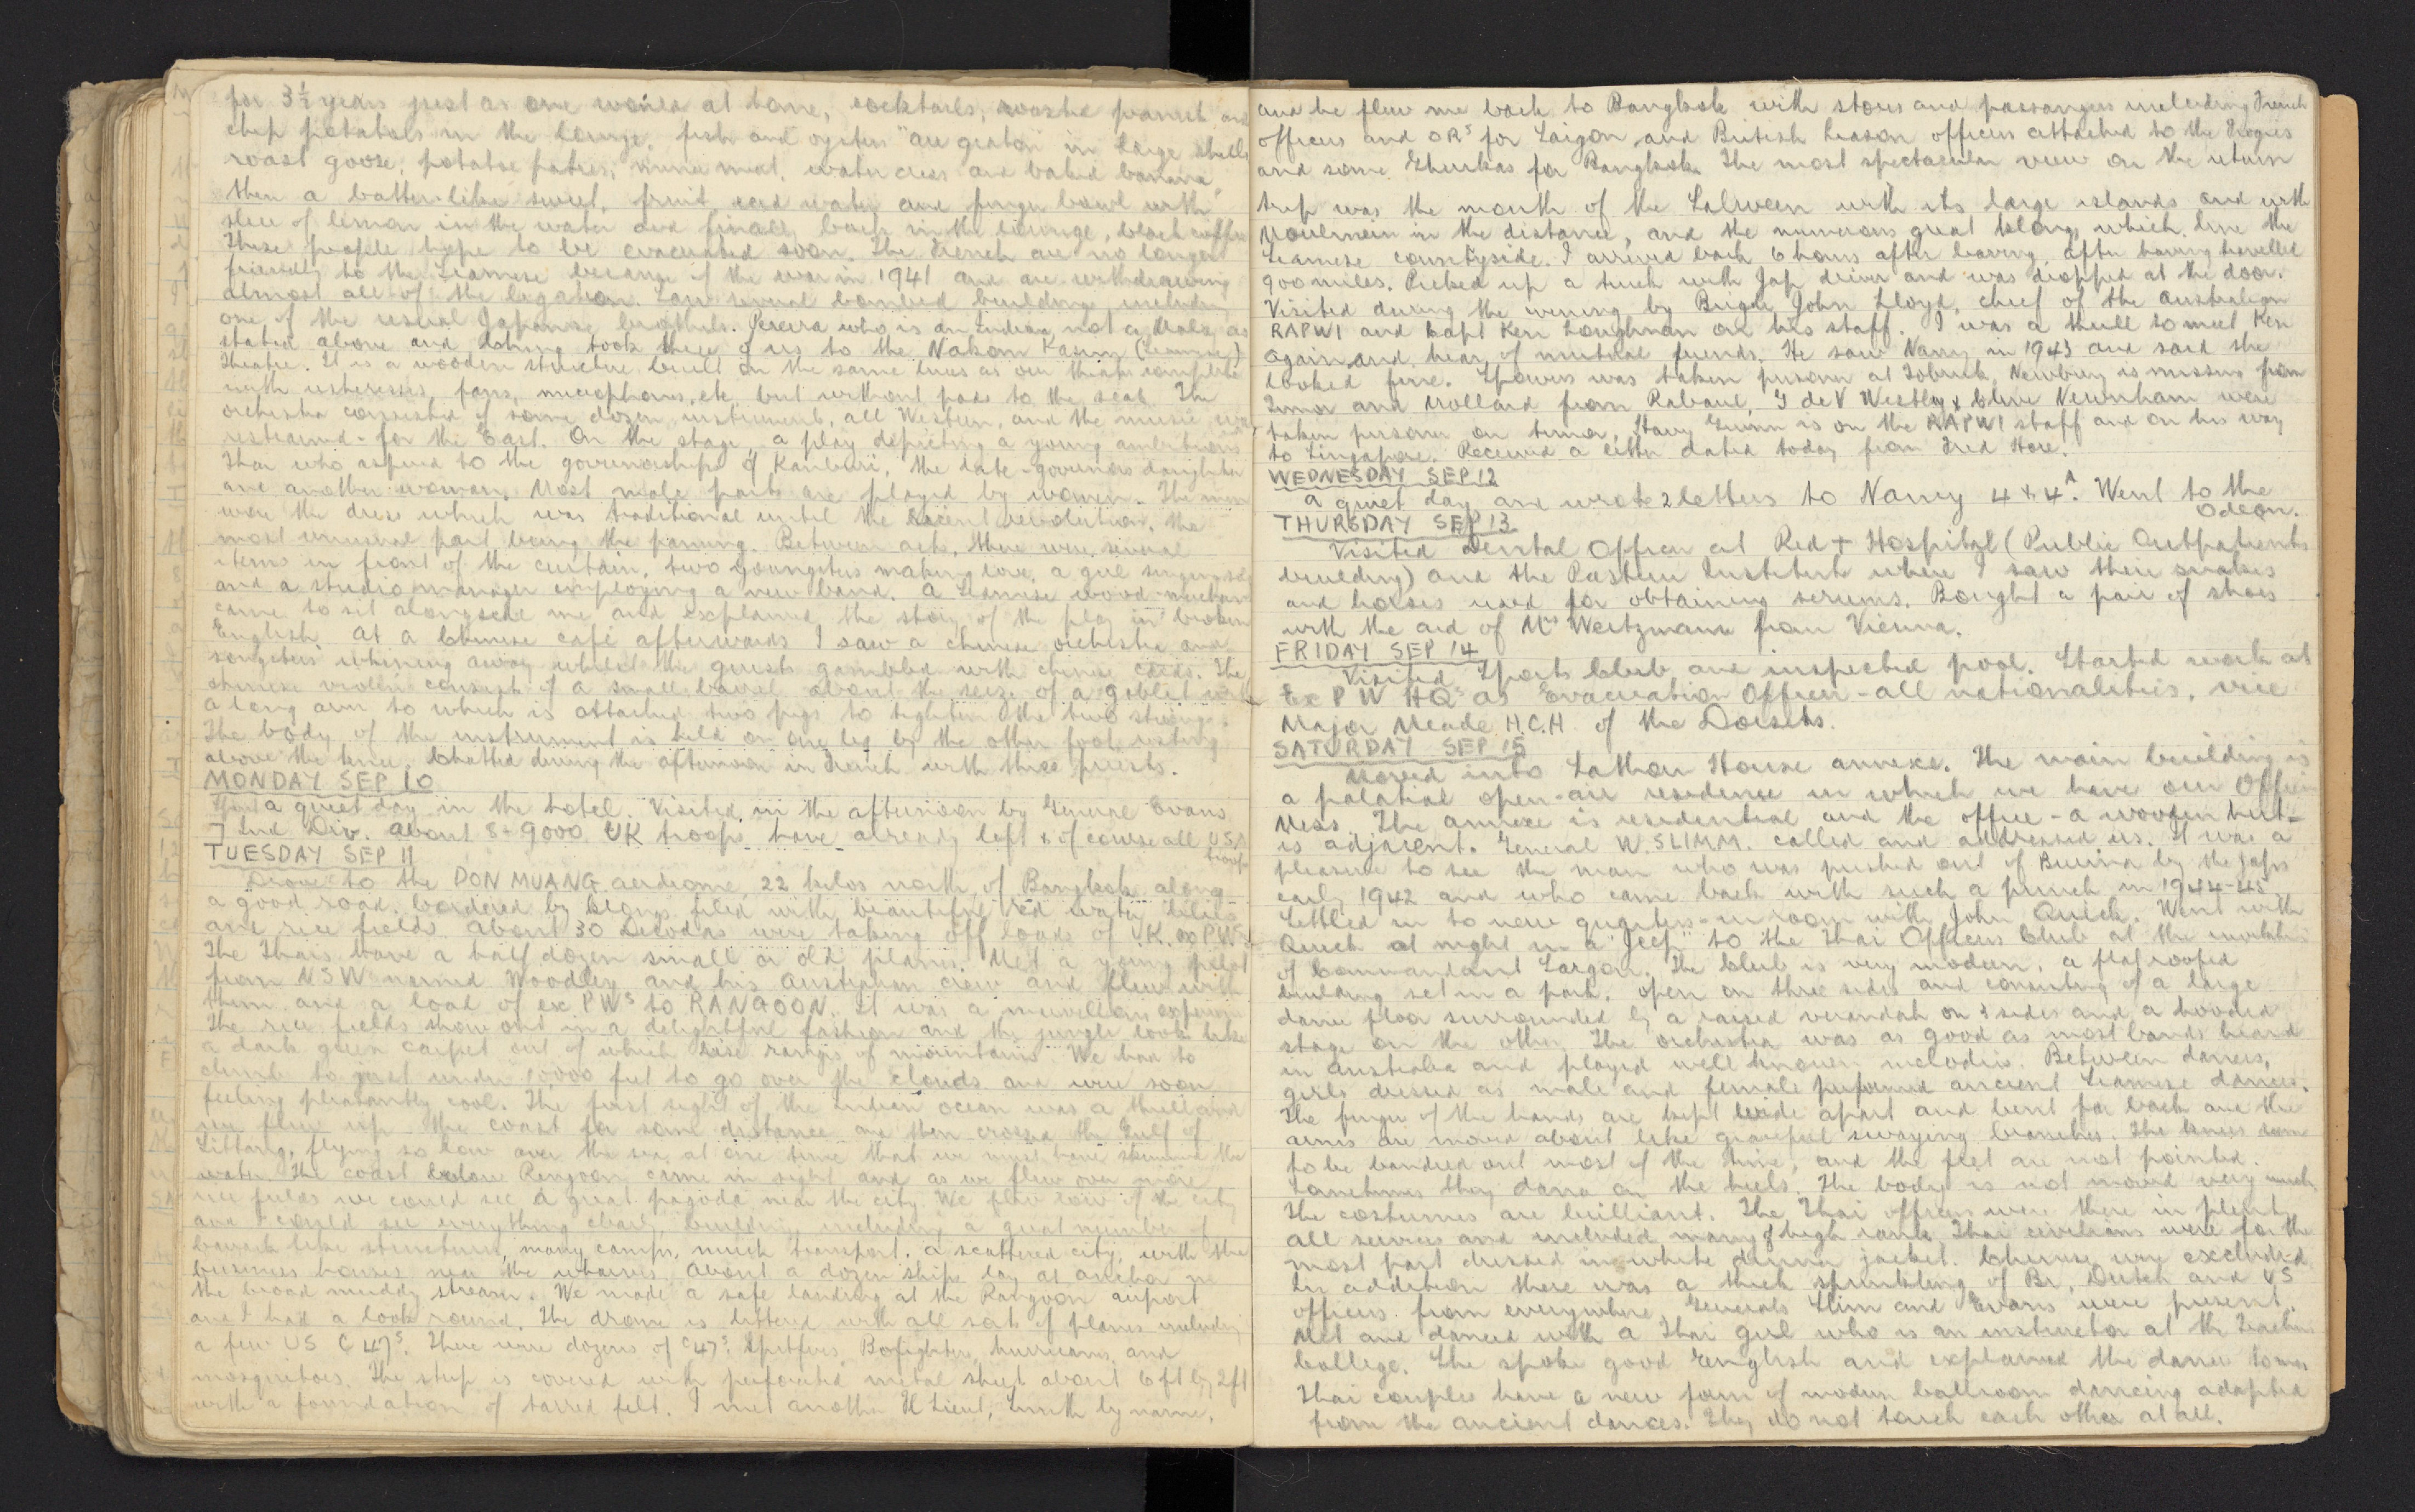 for 3½ years just as one would at home, cocktails, roasted peanuts and
chip potatoes in the lounge, fish and oysters "au gratin" in large shells
roast goose, potatoe patties, mince meat, water cress and baked banana,
then a batter-like sweet, fruit, iced water and finger bowl with
slice of lemon in the water and finally back in the lounge, black coffee
These people hope to be evacuated soon. The French are no longer
friendly to the Siamese because of the war in 1941 and are withdrawing
almost all of the legation. Saw several bombed buildings including
one of the usual Japanese brothels. Pereira who is an Indian not a Malay as
stated above and took three of us to the Nakom Kasem (Siamese)
theatre. It is a wooden structure built on the same lines as our theatres complete
with usheresses, fans, microphones, etc, but without pads to the seats. The
orchestra consisted of some dozen instruments, all Western, and the music was
restrained - for the East. On the stage, a play depicting a young ambitious
Thai who aspired to the governorship of Kanburi, the late-governors daughter
and another woman. Most male parts are played by women. The men
wore the dress which was traditional until the recent revolution, the
most unusual part being the panung. Between acts, there were several
items in front of the curtain, two youngsters making love, a girl singing solo
and a studio manager employing a new band. A Siamese wood-merchant
came to sit alongside me and explained the story of the play in broken
English. At a Chinese café afterwards I saw a chinese orchestra and
songsters whining away whilst the guests gambled with chinese cards. The
chinese violin consists of a small barrel about the size of a goblet with
a long arm to which is attached two pegs to tighten the two strings.
The body of the instrument is held on one leg by the other foot resting
above the knee. Chatted during the afternoon in French with three priests.
MONDAY SEP 10
Spent a quiet day in the hotel. Visited in the afternoon by General Evans
7 Ind Div. About 8-9000 UK troops have already left & of course all USA
troops
TUESDAY SEP 11
Drove to the DON MUANG aerdrome, 22 kilos north of Bangkok along
a good road, bordered by klongs filled with beautiful red water lilies
and rice fields. About 30 Dakotas were taking off loads of UK ex PWs
The Thais have a half dozen small or old planes. Met a young pilot
from NSW named Woodley and his Australian crew and flew with
them and a load of ex PWs to RANGOON. It was a marvellous experience
The rice fields show out in a delightful fashion and the jungle looks like
a dark green carpet out of which rise ranges of mountains. We had to
climb to just under 10,000 feet to go over the clouds and were soon
feeling pleasantly cool. The first sight of the Indian Ocean was a thrill and
we flew up the coast for some distance and then crossed the Gulf of
Sittang, flying so low over the sea at one time that we must have skimmed the
water. The coast below Rangoon came in sight and as we flew over more
rice fields we could see a great pagoda near the city. We flew low of the city
and I could see everything clearly, buildings including a great number of
barrack like structures, many camps, much transport. A scattered city, with the
business houses near the wharves. About a dozen ships lay at anchor in
the broad muddy stream. We made a safe landing at the Rangoon airport
and I had a look round. The drome is littered with all sorts of planes including
a few US C47s. There were dozens of C47s, Spitfires, Bofighters, hurricanes, and
mosquitoes. The strip is covered with perforated metal sheets about 6ft by 2ft
with a foundation of tarred felt. I met another Fl Lieut, Smith by name,
and he flew me back to Bangkok with stores and passangers including French
officers and ORs for Saigon and British liason officers attached to the Frogies
and some Ghurkas for Bangkok. The most spectacular view on the return
trip was the mouth of the Salween with its large islands and with
Moulmein in the distance, and the numerous great klongs which line the
Siamese countryside. I arrived back 6 hours after leaving, after having travelled
900 miles. Picked up a truck with Jap driver and was dropped at the door.
Visited during the evening by Brigde John Lloyd, chief of the Australian
RAPWI and Capt Ken Loughman on his staff. I was a thrill to meet Ken
again and hear of mutual friends. He saw Nancy in 1943 and said she
looked fine. Spowers was taken prisoner at Tobruk, Newbury is missing from
Timor and Mollard from Rabaul, G de V Westley & Clive Newnham were
taken prisoner on Timor. Harry Gunn is on the RAPWI staff and on his way
to Singapore. Received a letter dated today from Fred Hore.
WEDNESDAY SEP 12
A quiet day and wrote 2 letters to Nancy 4 & 4A. Went to the
Odeon.
THURSDAY SEP 13
Visited Dental Officer at Red + Hospital (Public Outpatients
building) and the Pasteur Institute where I saw their snakes
and horses used for obtaining serums. Bought a pair of shoes
with the aid of Mr Weitzmann from Vienna.
FRIDAY SEP 14
Visited Sports Club and inspected pool. Started work at
Ex P W HQs as Evacuation Officer - all nationalities, vice
Major Meade H.C.H. of the Dorsets.
SATURDAY SEP 15
Moved into Sathon House annexe. The main building is
a palatial open-air residence in which we have our Officers
Mess. The annexe is residential and the office - a wooden hut -
is adjacent. General W. SLIMM. called and addressed us. It was a
pleasure to see the man who was pushed out of Burma by the Japs
early 1942 and who came back with such a punch in 1944-45
Settled in to new quarters - in room with John Quick. Went with
Quick at night in a "Jeep" to the Thai Officers Club at the invitation
of Commandant Sargon. The Club is very modern, a flat roofed
building set in a park, open on three sides and consisting of a large
dance floor surrounded by a raised verandah on 3 sides and a hooded
stage on the other. The orchestra was as good as most bands heard
in Australia and played well known melodies. Between dances,
girls dressed as male and female performed ancient Siamese dances.
The fingers of the hands are kept wide apart and bent far back and the
arms are moved about like graceful swaying branches. The knees seem
to be bandied out most of the time, and the feet are not pointed.
Sometimes they dance on the heels. The body is not moved very much
The costumes are brilliant. The Thai officers were there in plenty
all services and included many of high rank. Thai civilians were for the
most part dressed in white dinner jacket. Chinese were excluded
In addition there was a thick sprinkling of Br, Dutch and US
officers from everywhere. Generals Slim and Evans were present.
Met and danced with a Thai girl who is an instructor at the Teachers
College. She spoke good English and explained the dances to me.
Thai couples have a new form of modern ballroom dancing adapted
from the ancient dances. They do not touch each other at all.